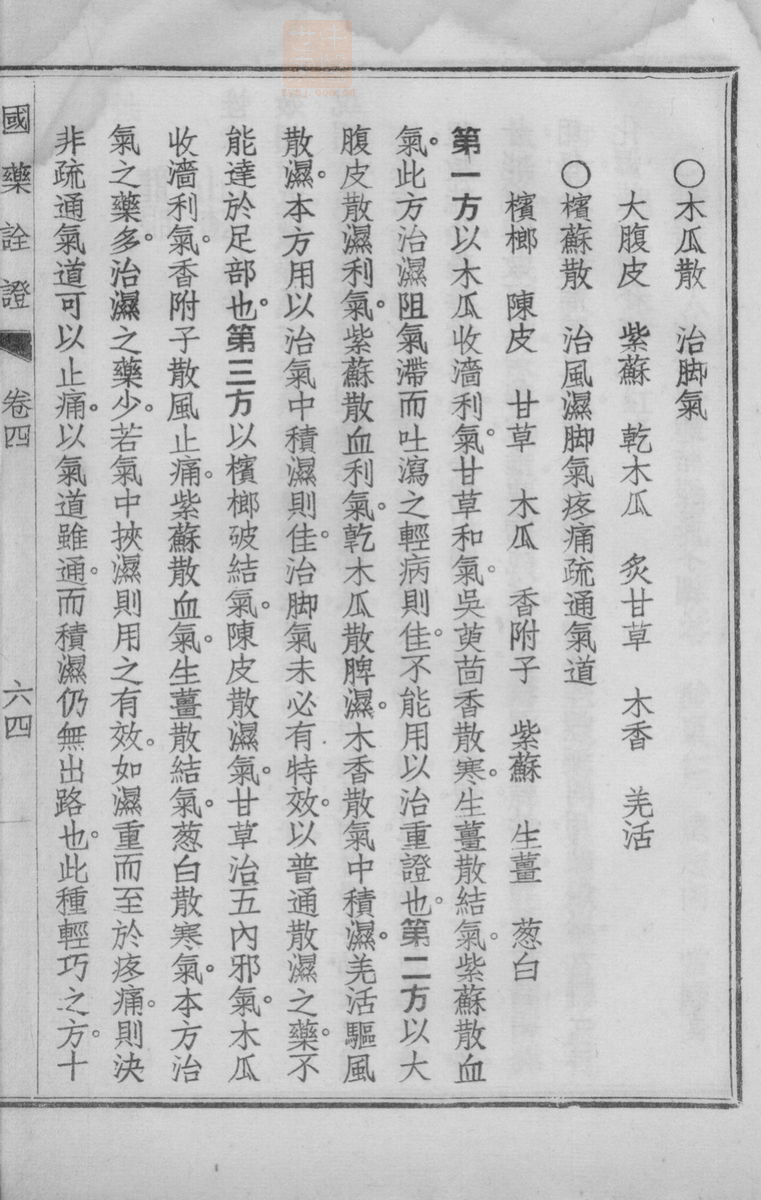 〇木瓜散　治脚氣
大腹皮　紫蘇　乾木瓜　炙甘草　木香　羌活
〇檳蘇散　治風濕脚氣疼痛疏通氣道
檳榔　陳皮　甘草　木瓜　香附子　紫蘇　生薑　葱白
第一方以木瓜收濇利氣。甘草和氣。吳萸茴香散寒。生薑散結氣。紫蘇散血
氣。此方治濕阻氣滯而吐瀉之輕病則佳。不能用以治重證也。第二方以大
腹皮散濕利氣。紫蘇散血利氣。乾木瓜散脾濕。木香散氣中積濕。羌活驅風
散濕。本方用以治氣中積濕則佳。治脚氣未必有特效。以普通散濕之藥。不
能達於足部也。第三方以檳榔破結氣。陳皮散濕氣。甘草治五內邪氣。木瓜
收濇利氣。香附子散風止痛。紫蘇散血氣。生薑散結氣。葱白散寒氣。本方治
氣之藥多。治濕之藥少。若氣中挾濕則用之有效。如濕重而至於疼痛。則決
非疏通氣道可以止痛。以氣道雖通。而積濕仍無出路也。此種輕巧之方。十
國藥詮證　卷四　六四